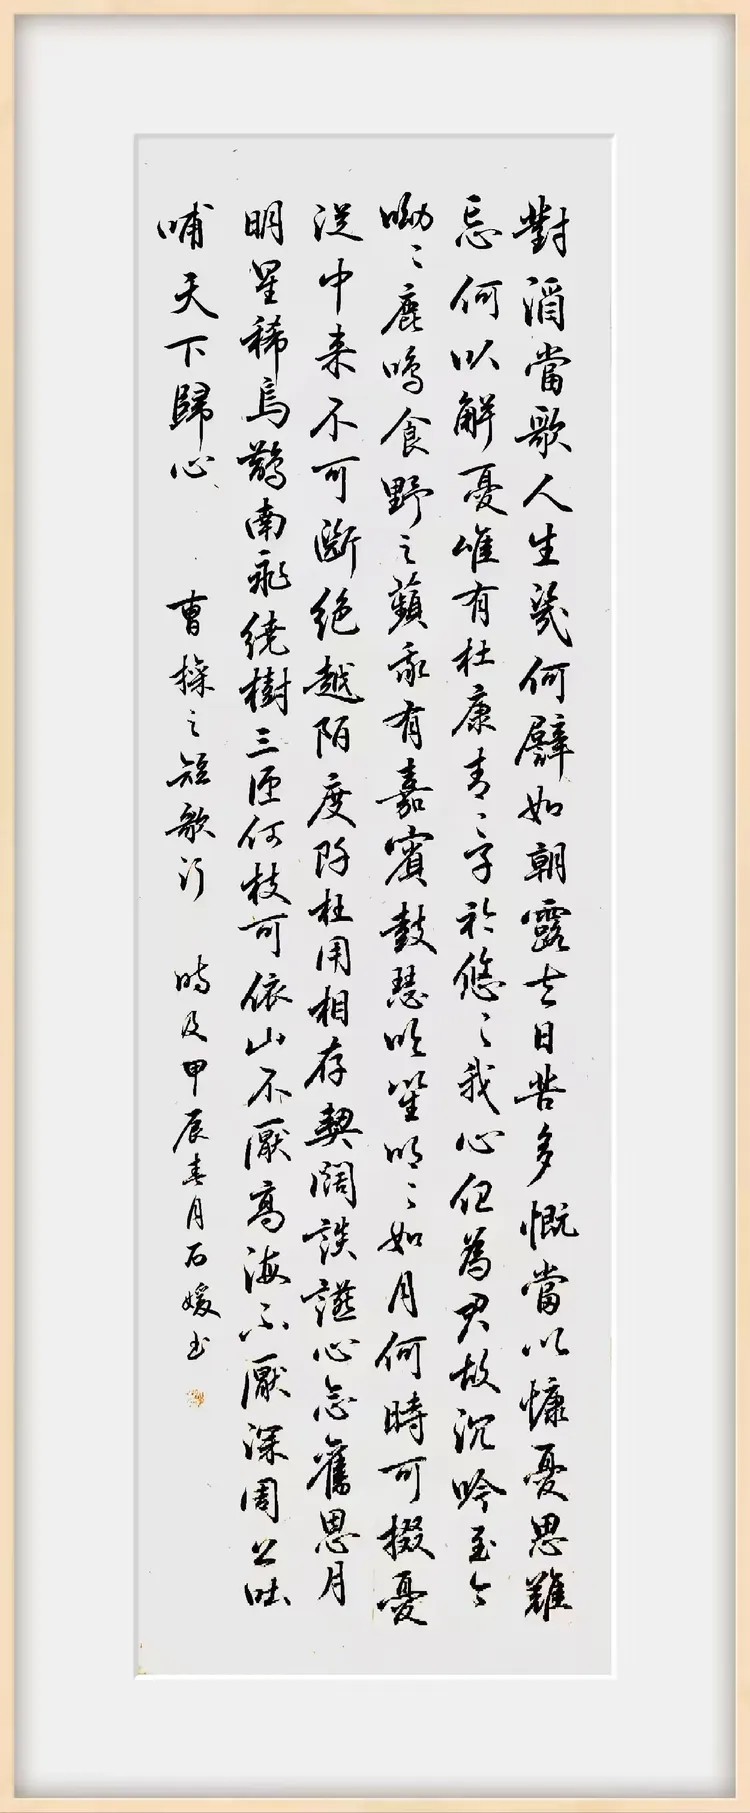 對酒當歌人生幾何譬如朝露去日苦多慨當以慷憂思難
忘何以解憂唯有杜康青〻子衿悠〻我心但為君故沉吟至今
呦〻鹿鳴食野之蘋我有嘉賓鼓瑟吹笙明〻如月何時可掇憂
從中来不可斷絕越陌度阡枉用相存契闊談讌心念舊恩月
明星稀烏鵲南飛繞樹三匝何枝可依山不厭高海不厭深周公吐
哺天下歸心 曹操之短歌行 時及甲辰春月石媛书